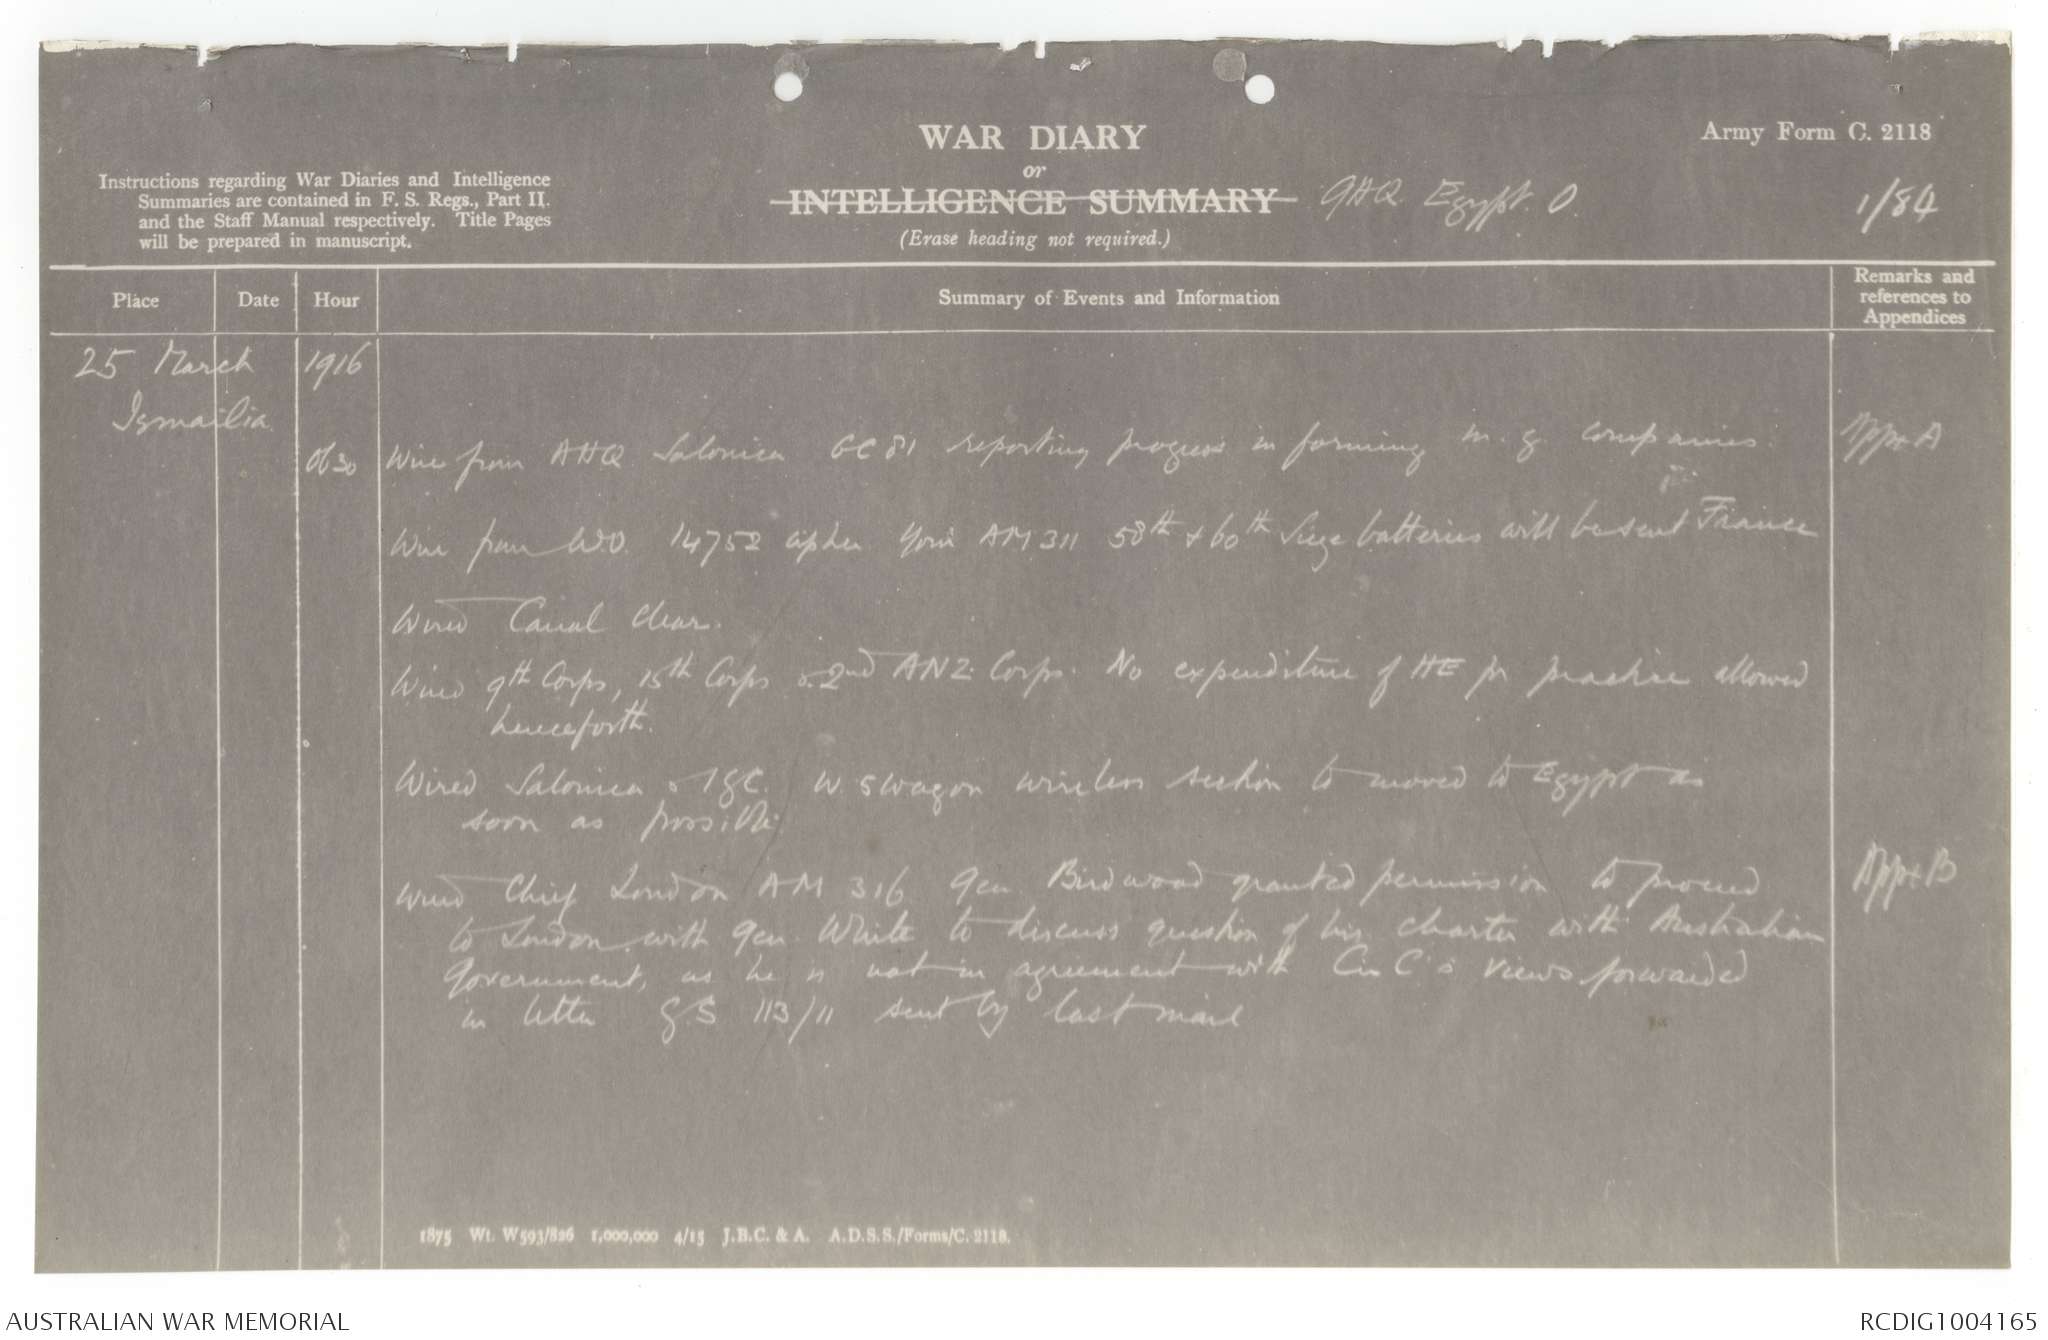 WAR DIARY
or
INTELLIGENCE SUMMARY
(Erase heading not required.)
Army Form C. 2118
Instructions regarding War Diaries and Intelligence
Summaries are contained in F. S. Regs., Part II.
and the Staff Manual respectively. Title Pages
will be prepared in manuscript.
GHQ Egypt. O
1/84
Place
Date
Hour
Summary of Events and Information
Remarks and
references to
Appendices
25 March 1916
Ismailia
0630 Wire from AHQ Salonica GC 81 reporting progress in forming m. g companies. Appx A
Wire from W.O. 14752 cipher Your AM 311 58th & 60th Siege batteries will be sent France
Wired Canal clear.
Wired 9th Corps, 15th Corps & 2nd ANZ Corps. No expenditure of HE for practice allowed
henceforth.
Wired Salonica & IGC. W. 5 wagon wireless section to moved to Egypt as
soon as possible.
Wired Chief London AM 316 Gen. Birdwood granted permission to proceed Appx B
to London with Gen. White to discuss question of his charter with Australian
Government, as he is not in agreement with C in C's views forwarded
in letter G.S 113/11 sent by last mail
1875 Wt. W593/826 1,000,000 4/15 J.B.C. & A. A.D.S.S./Forms/C. 2118.
AUSTRALIAN WAR MEMORIAL
RCDIG1004165